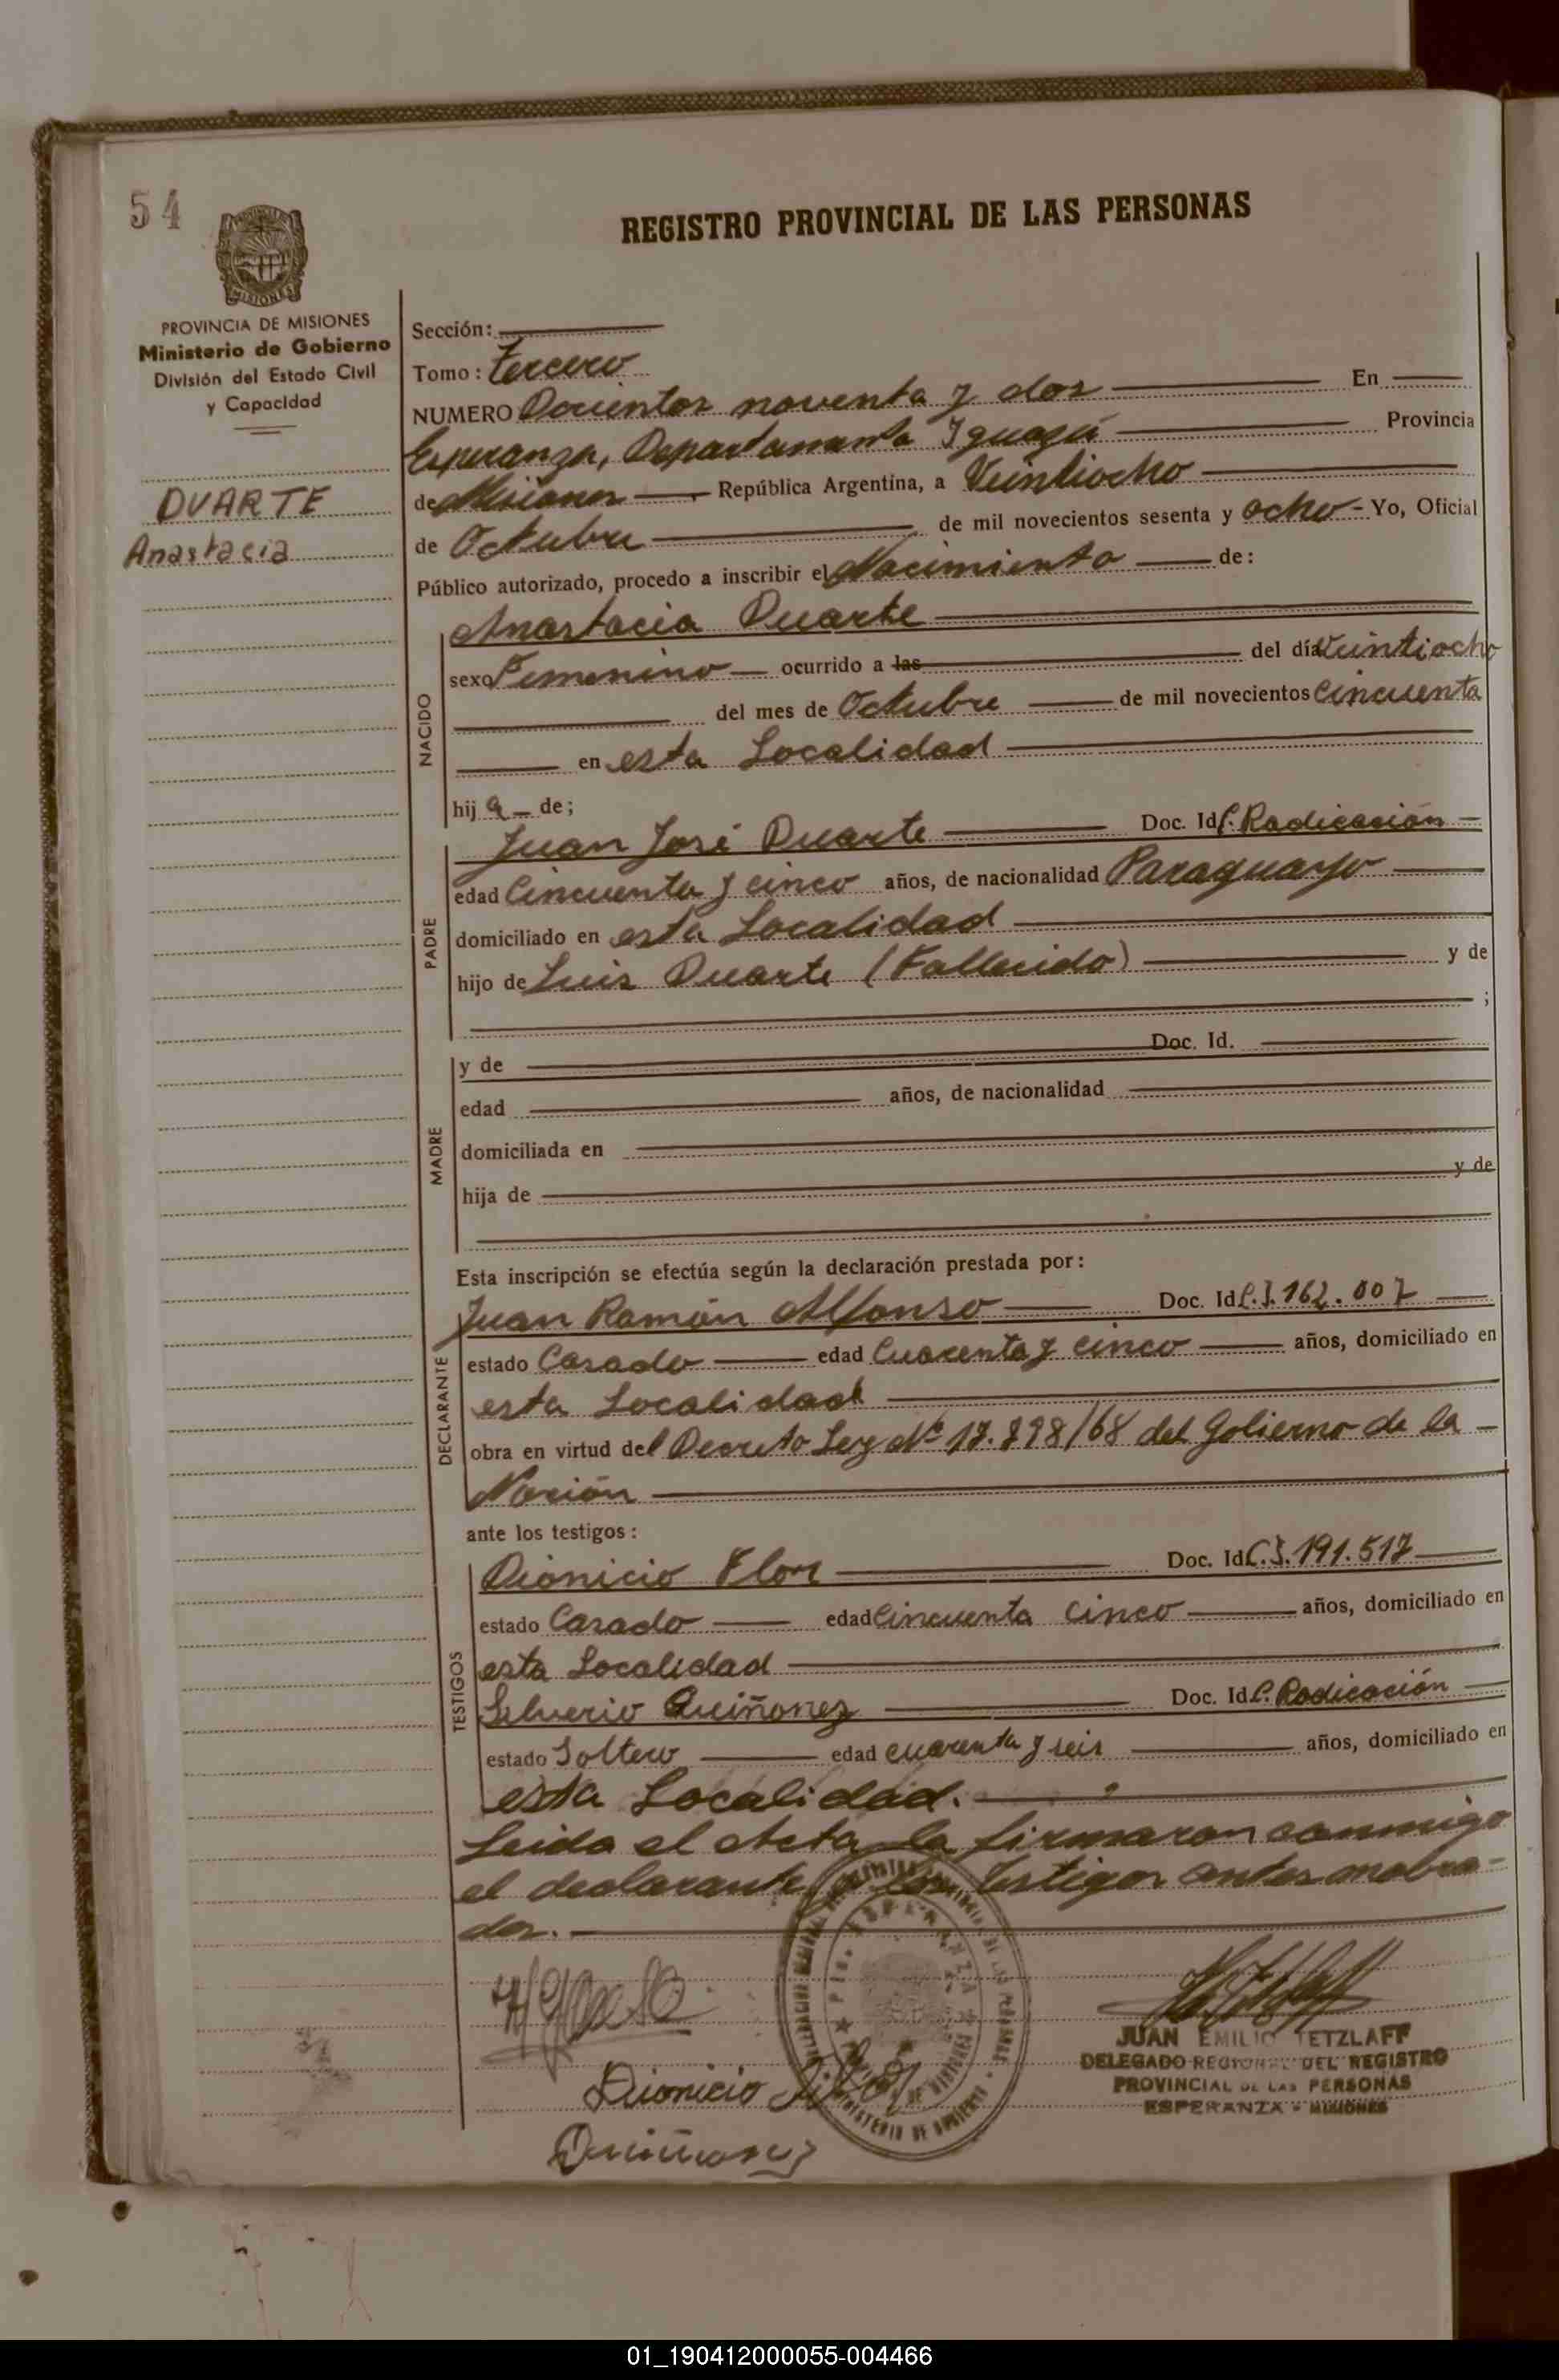 54
REGISTRO PROVINCIAL DE LAS PERSONAS
MISIONES
PROVINCIA DE MISIONES
Ministerio de Gobierno
División del Estado Civil
y Capacidad
DUARTE
Anastacia
Sección:
Tomo: tercero
NUMERO Docientos noventa y dos En
Esperanza, Departamento Iguazú Provincia
de Misiones República Argentina, a Veintiocho
de Octubre de mil novecientos sesenta y ocho - Yo, Oficial
Público autorizado, procedo a inscribir el Nacimiento de:
NACIDO
Anastacia Duarte
sexo Femenino ocurrido a las del día Veintiocho
del mes de Octubre de mil novecientos Cincuenta
en esta Localidad
hij a de;
PADRE
Juan José Duarte Doc. Id C. Radicación
edad Cincuenta y cinco años, de nacionalidad Paraguayo
domiciliado en esta Localidad
hijo de Luis Duarte (Fallecido) y de
;
MADRE
y de Doc. Id.
edad años, de nacionalidad
domiciliada en
hija de y de
Esta inscripción se efectúa según la declaración prestada por:
DECLARANTE
Juan Ramón Alfonso Doc. Id C.I. 162.007
estado Casado edad Cuarenta y cinco años, domiciliado en
esta Localidad
obra en virtud del Decreto Ley Nº 17.798/68 del Gobierno de la
Nación
ante los testigos:
TESTIGOS
Dionicio Flor Doc. Id C.I. 191.517
estado Casado edad Cincuenta cinco años, domiciliado en
esta Localidad
Silverio Quiñonez Doc. Id C. Radicación
estado Soltero edad cuarenta y seis años, domiciliado en
esta Localidad.
Leida el Acta la firmaron conmigo
el declarante y los testigos antes mobra-
dos.
Dionicio Flor
Quiñonez
JUAN EMILIO TETZLAFF
DELEGADO REGIONAL DEL REGISTRO
PROVINCIAL DE LAS PERSONAS
ESPERANZA - MISIONES
01_190412000055-004466